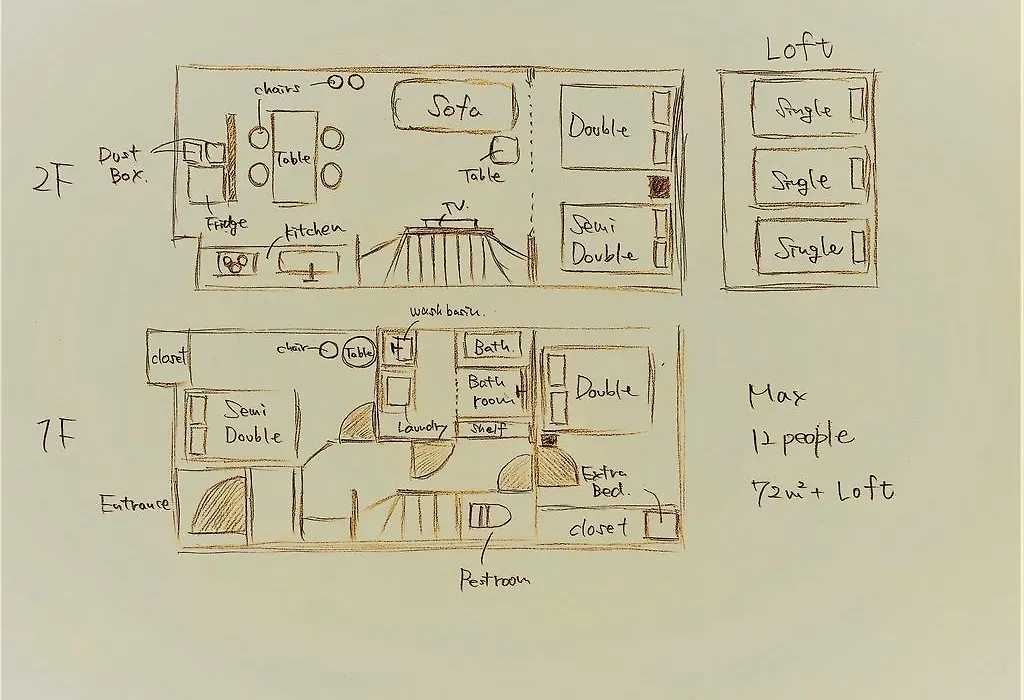 Loft
chairs
Sofa
Single
Double
Dust
Box.
Table
2F
Table
Single
Fridge
Kitchen
TV.
Semi
Double
Single
wash basin.
closet
chair
Table
Bath.
Bath
room
Double
Max
Semi
Double
Laundry
Shelf
12 people
1F
Entrance
Extra
Bed.
72m²+ Loft
closet
Restroom